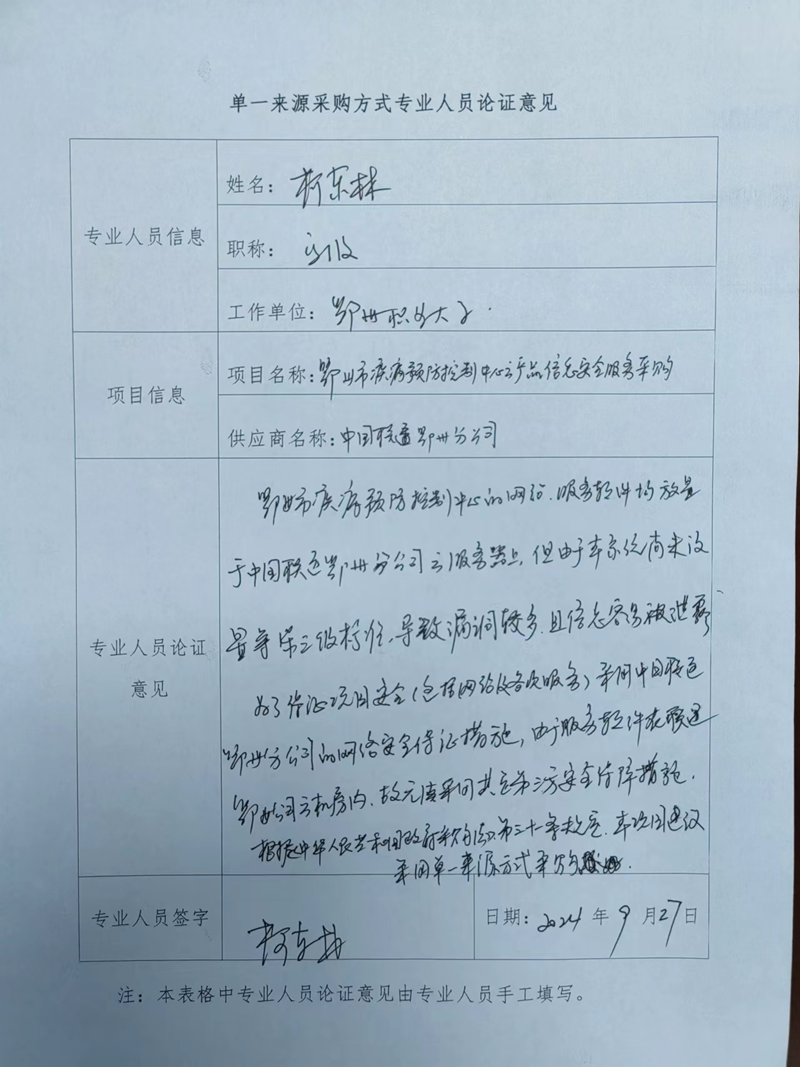 单一来源采购方式专业人员论证意见
专业人员信息
姓名：柯东林
职称：
工作单位：鄂州职业大学
项目信息
项目名称：鄂州市疾病预防控制中心云产品信息安全服务采购
供应商名称：中国联通鄂州分公司
专业人员论证
意见
鄂州市疾病预防控制中心的网络、服务软件均放置
于中国联通鄂州分公司云服务器上，但由于本系统尚未设
置等保三级标准、导致漏洞较多，且信息容易被泄露
为了保证项目安全（包括网络及各项服务）采用中国联通
鄂州分公司的网络安全保证措施，由于服务软件在联通
鄂州公司云机房内，故无法采用其它第三方安全保障措施.
根据中华人民共和国政府采购法第三十一条规定，本项目建议
采用单一来源方式采购
专业人员签字
柯东林
日期：2024 年 9 月 27 日
注：本表格中专业人员论证意见由专业人员手工填写。